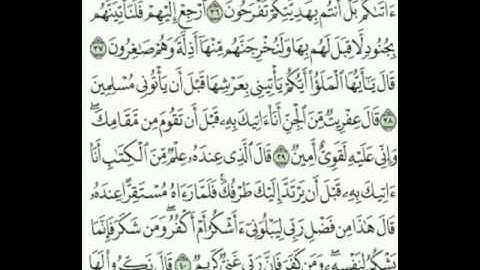 ءَاتَىٰكُم بَلْ أَنتُم بِهَدِيَّتِكُمْ تَفْرَحُونَ ٣٦ ٱرْجِعْ إِلَيْهِمْ فَلَنَأْتِيَنَّهُم
بِجُنُودٍ لَّا قِبَلَ لَهُم بِهَا وَلَنُخْرِجَنَّهُم مِّنْهَآ أَذِلَّةً وَهُمْ صَٰغِرُونَ ٣٧
قَالَ يَٰٓأَيُّهَا ٱلْمَلَؤُا۟ أَيُّكُمْ يَأْتِينِى بِعَرْشِهَا قَبْلَ أَن يَأْتُونِى مُسْلِمِينَ
٣٨ قَالَ عِفْرِيتٌ مِّنَ ٱلْجِنِّ أَنَا۠ ءَاتِيكَ بِهِۦ قَبْلَ أَن تَقُومَ مِن مَّقَامِكَ ۖ
وَإِنِّى عَلَيْهِ لَقَوِىٌّ أَمِينٌ ٣٩ قَالَ ٱلَّذِى عِندَهُۥ عِلْمٌ مِّنَ ٱلْكِتَٰبِ أَنَا۠
ءَاتِيكَ بِهِۦ قَبْلَ أَن يَرْتَدَّ إِلَيْكَ طَرْفُكَ ۚ فَلَمَّا رَءَاهُ مُسْتَقِرًّا عِندَهُۥ
قَالَ هَٰذَا مِن فَضْلِ رَبِّى لِيَبْلُوَنِىٓ ءَأَشْكُرُ أَمْ أَكْفُرُ ۖ وَمَن شَكَرَ فَإِنَّمَا
يَشْكُرُ لِنَفْسِهِۦ ۖ وَمَن كَفَرَ فَإِنَّ رَبِّى غَنِىٌّ كَرِيمٌ ٤٠ قَالَ نَكِّرُوا۟ لَهَا